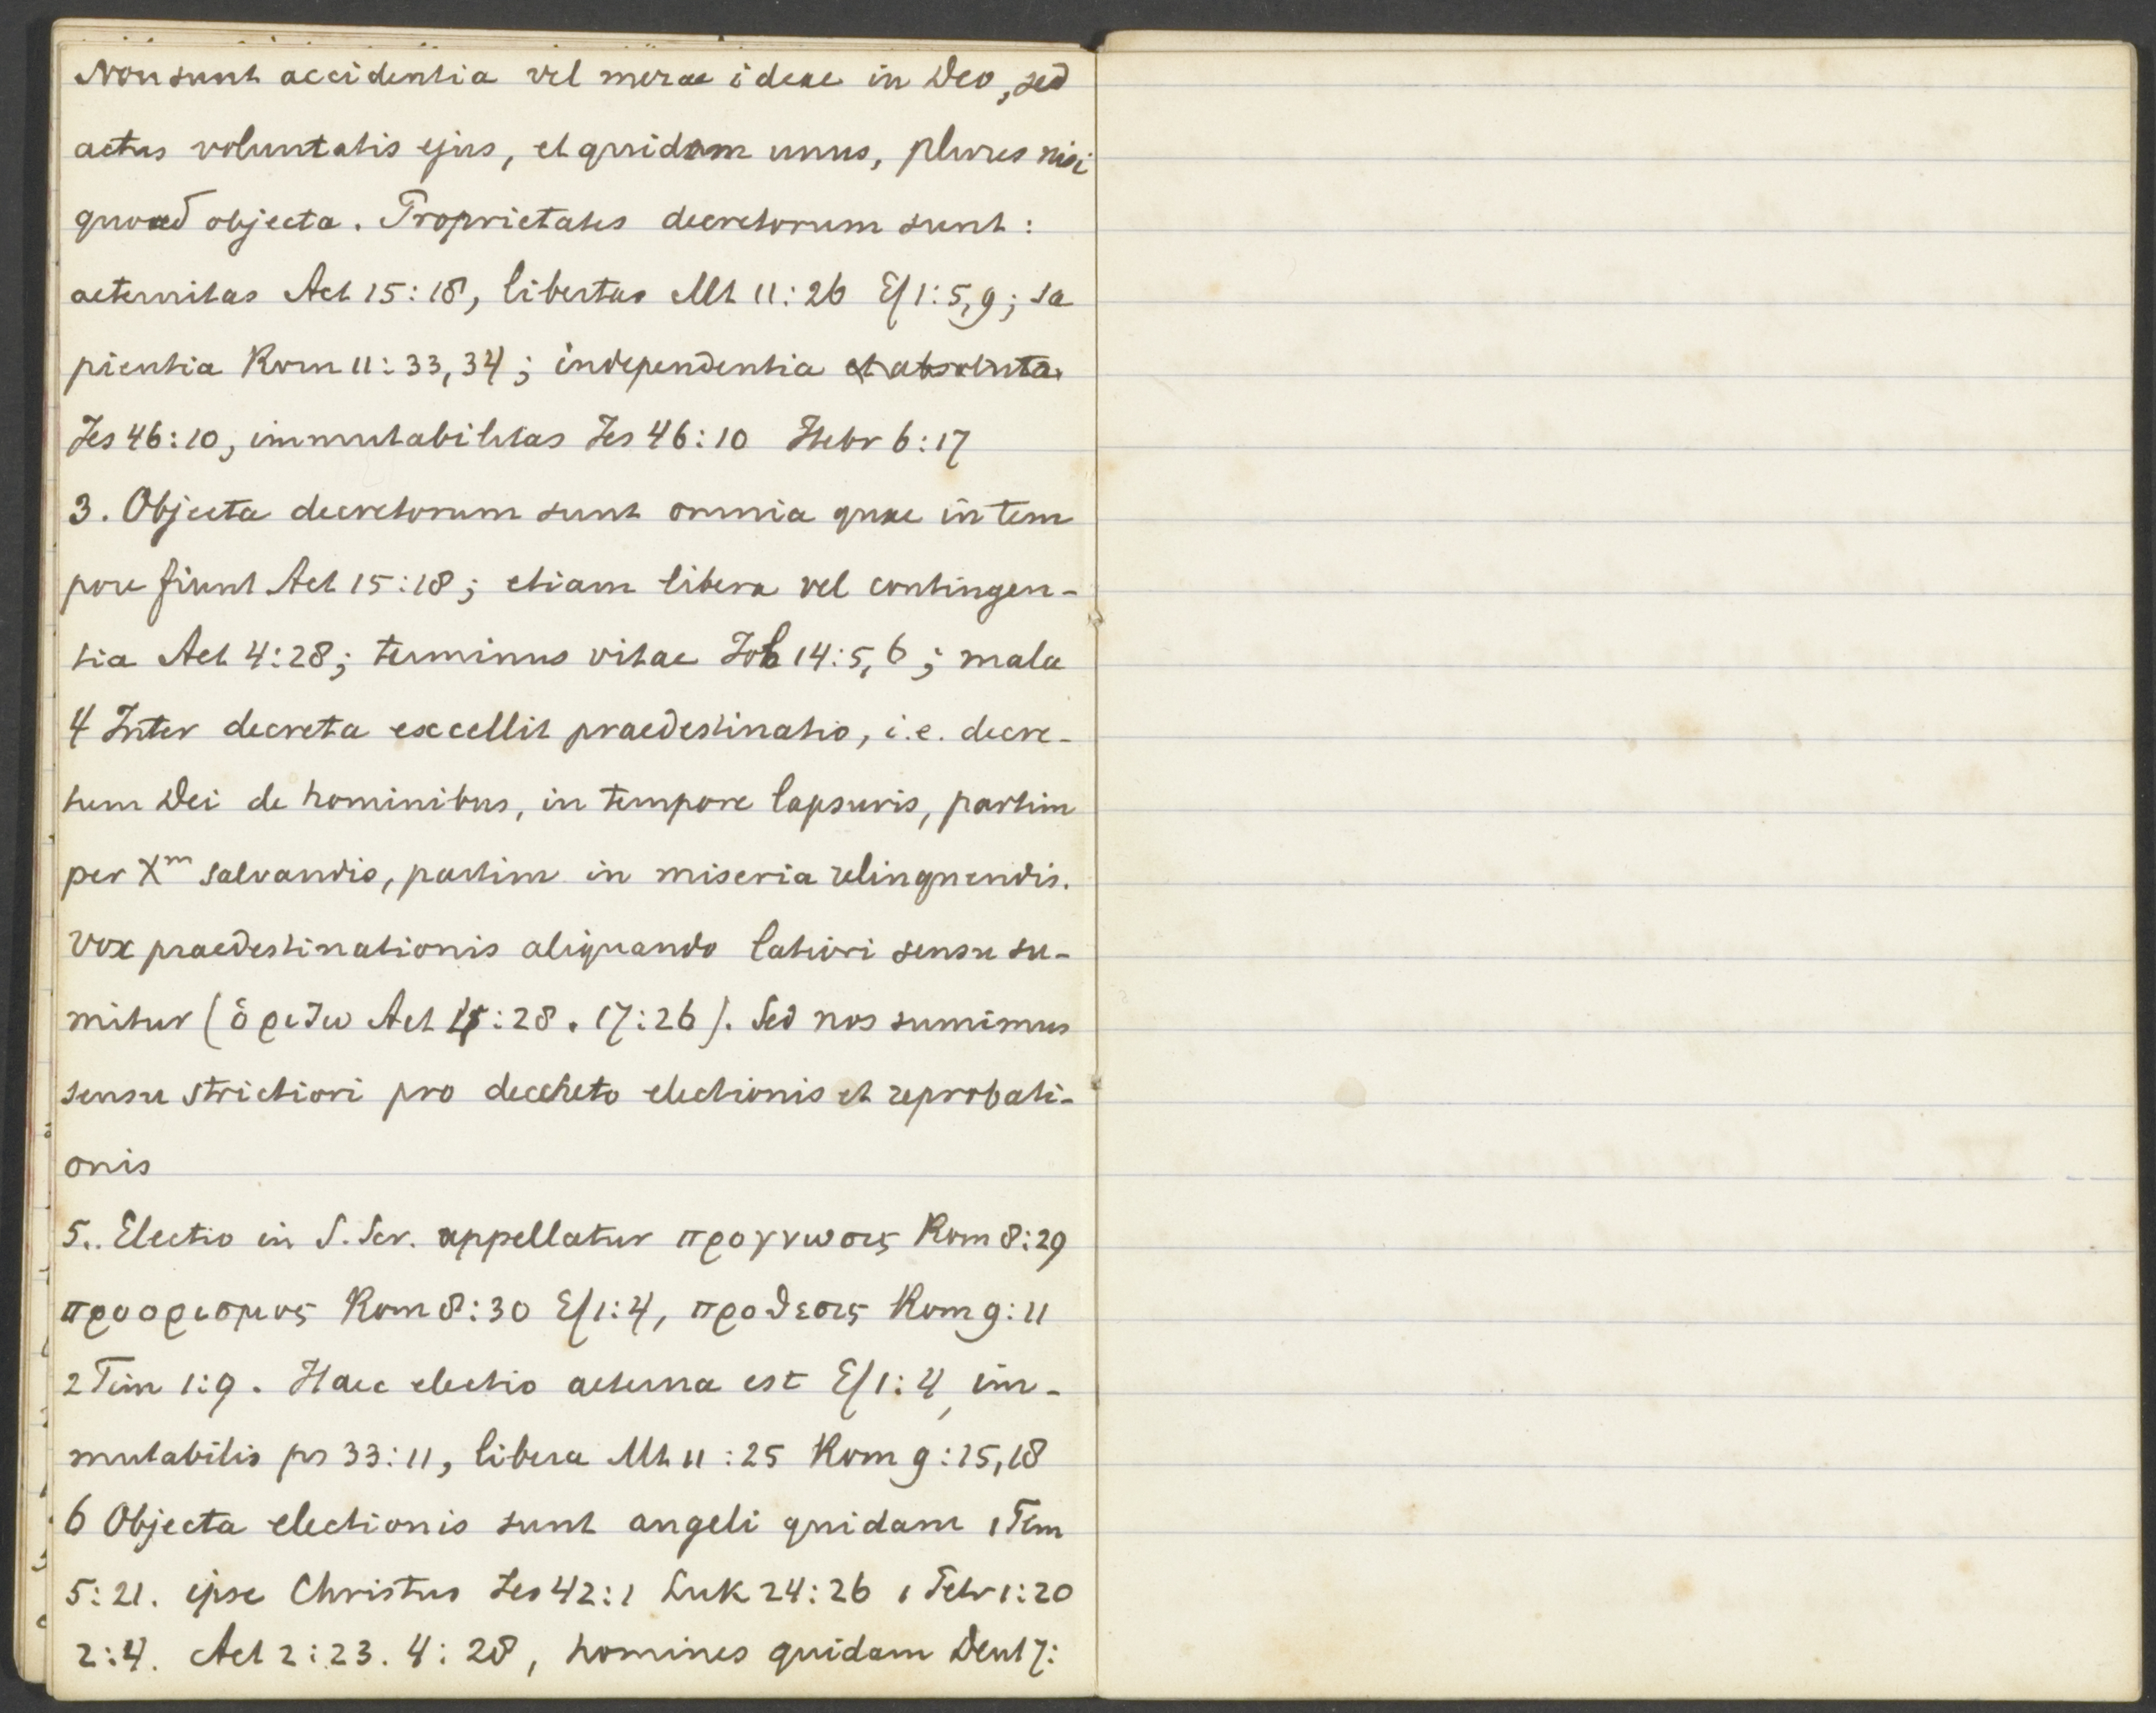 Non sunt accidentia vel merae ideae in Deo, sed
actus voluntatis ejus, et quidem unus, plures nisi
quoad objecta. Proprietates decretorum sunt:
aeternitas Act 15:18, libertas Mt 11:26 Ef 1:5,9; sa
pientia Rom 11:33,34; independentia et absoluta
Jes 46:10, immutabilitas Jes 46:10 Hebr 6:17
3. Objecta decretorum sunt omnia quae in tem
pore fiunt Act 15:18; etiam libera vel contingen-
tia Act 4:28; terminus vitae Job 14:5,6; mala
4 Inter decreta excellit praedestinatio, i.e. decre-
tum Dei de hominibus, in tempore lapsuris, partim
per Xm salvandis, partim in miseria relinquendis.
Vox praedestinationis aliquando latiori sensu su-
mitur (ὁριζω Act 4:28. 17:26). Sed nos sumimus
sensu strictiori pro decreto electionis et reprobati-
onis
5. Electio in S. Scr. appellatur προγνωσις Rom 8:29
προορισμος Rom 8:30 Ef 1:4, προθεσις Rom 9:11
2 Tim 1:9. Haec electio aeterna est Ef 1:4, im-
mutabilis ps 33:11, libera Mt 11:25 Rom 9:15,18
6 Objecta electionis sunt angeli quidam 1 Tim
5:21. ipse Christus Jes 42:1 Luk 24:26 1 Petr 1:20
2:4. Act 2:23. 4:28, homines quidam Deut 7: